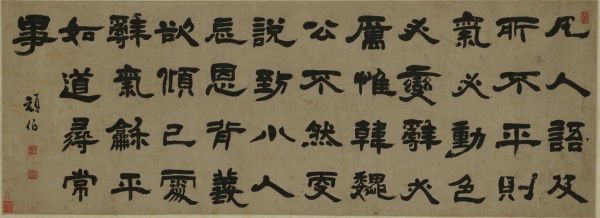 凡人語及
所不平則
氣必動色
必變辭必
厲惟韓魏
公不然更
說到小人
忘恩背義
欲傾己處
辭氣龢平
如道尋常
事
頑伯